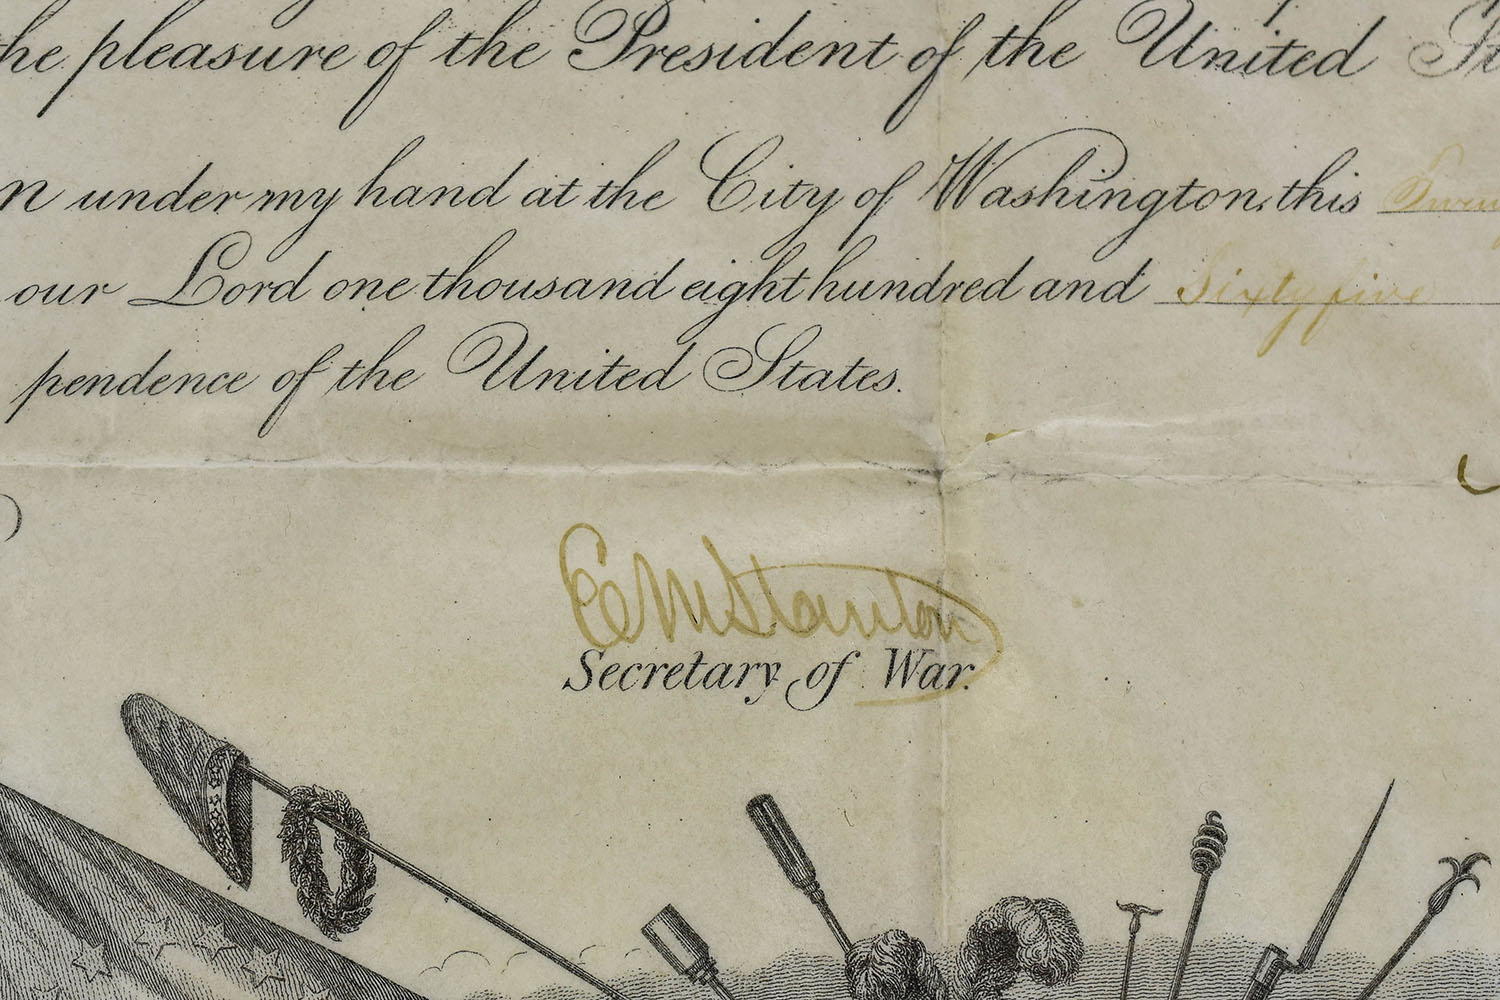 the pleasure of the President of the United
under my hand at the City of Washington, this
our Lord one thousand eight hundred and Sixty five
pendence of the United States.
E M Stanton
Secretary of War.